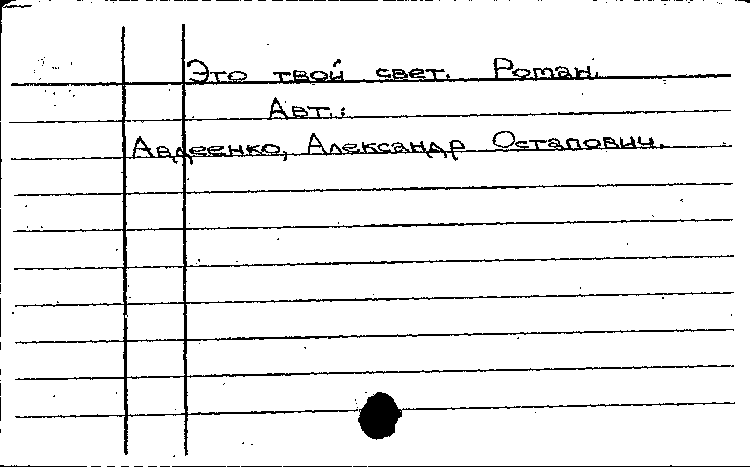 Это твой свет. Роман.
Авт.:
Авдеенко, Александр Остапович.